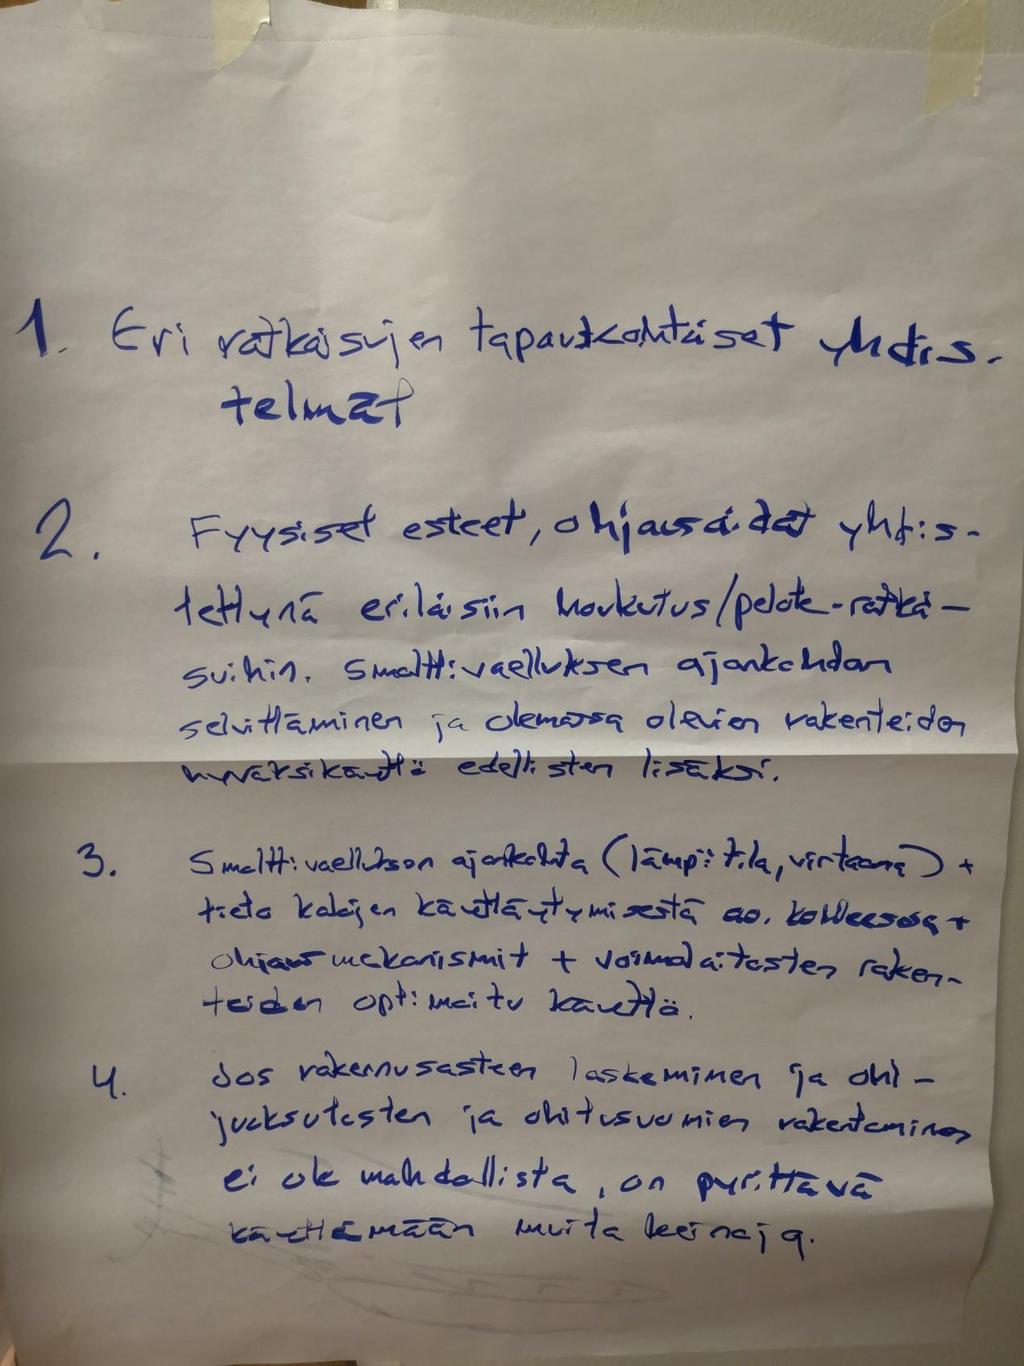 1. Eri ratkaisujen tapauskohtaiset yhdis-
telmät
2. Fyysiset esteet, ohjausaidat yhdis-
tettynä erilaisiin houkutus/pelote-ratkai-
suihin. Smolttivaelluksen ajankohdan
selvittäminen ja olemassa olevien rakenteiden
hyväksikäyttö edellisten lisäksi.
3. Smolttivaelluksen ajankohta (lämpötila, virtaama) +
tieto kalojen käyttäytymisestä ao. kohteessa +
ohjausmekanismit + voimalaitosten raken-
teiden optimoitu käyttö.
4. Jos rakennusasteen laskeminen ja ohi-
juoksutusten ja ohitusuomien rakentaminen
ei ole mahdollista, on pyrittävä
käyttämään muita keinoja.